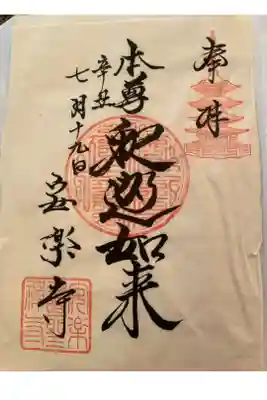 奉拝
辛丑
七月十九日
本尊
釈迦如来
安楽寺